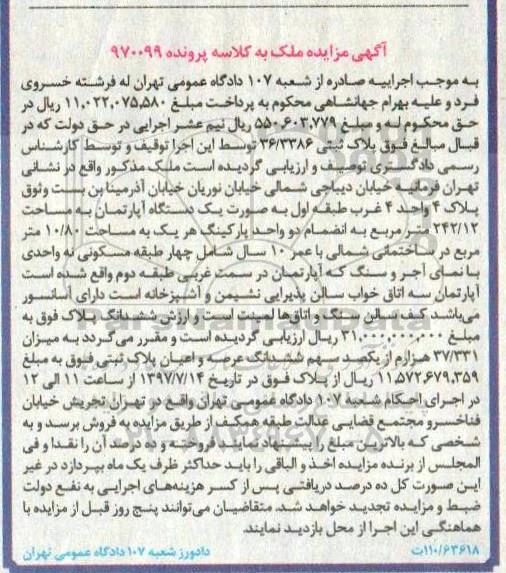 آگهی مزایده ملک به کلاسه پرونده ۹۷۰۰۹۹
به موجب اجراییه صادره از شعبه ۱۰۷ دادگاه عمومی تهران له فرشته خسروی
فرد و علیه بهرام جهانشاهی محکوم به پرداخت مبلغ ۱۱.۰۲۲,۰۷۵,۵۸۰ ریال در
حق محکوم له و مبلغ ۵۵۰.۶۰۳,۷۷۹ ریال نیم عشر اجرایی در حق دولت که در
قبال مبالغ فوق پلاک ثبتی ۳۶/۳۳۸۶ توسط این اجرا توقیف و توسط کارشناس
رسمی دادگستری توصیف و ارزیابی گردیده است ملک مذکور واقع در نشانی
تهران فرمانیه خیابان دیباجی شمالی خیابان نوریان خیابان آذرمینا بن بست وثوق
پلاک ۴ واحد ۴ غرب طبقه اول به صورت یک دستگاه آپارتمان به مساحت
۲۴۲/۱۲ متر مربع به انضمام دو واحد پارکینگ هر یک به مساحت ۱۰/۸۰ متر
مربع در ساختمانی شمالی با عمر ۱۰ سال شامل چهار طبقه مسکونی نه واحدی
با نمای آجر و سنگ که آپارتمان در سمت غربی طبقه دوم واقع شده است
آپارتمان سه اتاق خواب سالن پذیرایی نشیمن و آشپزخانه است دارای آسانسور
می‌باشد کف سالن سنگ و اتاق‌ها لمینت است و ارزش ششدانگ پلاک فوق به
مبلغ ۳۱,۰۰۰,۰۰۰,۰۰۰ ریال ارزیابی گردیده است و مقرر می‌گردد به میزان
۳۷/۳۳۱ هزارم از یکصد سهم ششدانگ عرصه و اعیان پلاک ثبتی فوق به مبلغ
۱۱,۵۷۲,۶۷۹,۳۵۹ ریال از پلاک فوق در تاریخ ۱۳۹۷/۷/۱۴ از ساعت ۱۱ الی ۱۲
در اجرای احکام شعبه ۱۰۷ دادگاه عمومی تهران واقع در تهران تجریش خیابان
فناخسرو مجتمع قضایی عدالت طبقه همکف از طریق مزایده به فروش برسد و به
شخصی که بالاترین مبلغ را پیشنهاد نماید فروخته و ده درصد آن را نقدا و فی
المجلس از برنده مزایده اخذ و الباقی را باید حداکثر ظرف یک ماه بپردازد در غیر
این صورت کل ده درصد دریافتی پس از کسر هزینه‌های اجرایی به نفع دولت
ضبط و مزایده تجدید خواهد شد. متقاضیان می‌توانند پنج روز قبل از مزایده با
هماهنگی این اجرا از محل بازدید نمایند.
۱۱۰/۶۳۶۱۸ت دادورز شعبه ۱۰۷ دادگاه عمومی تهران